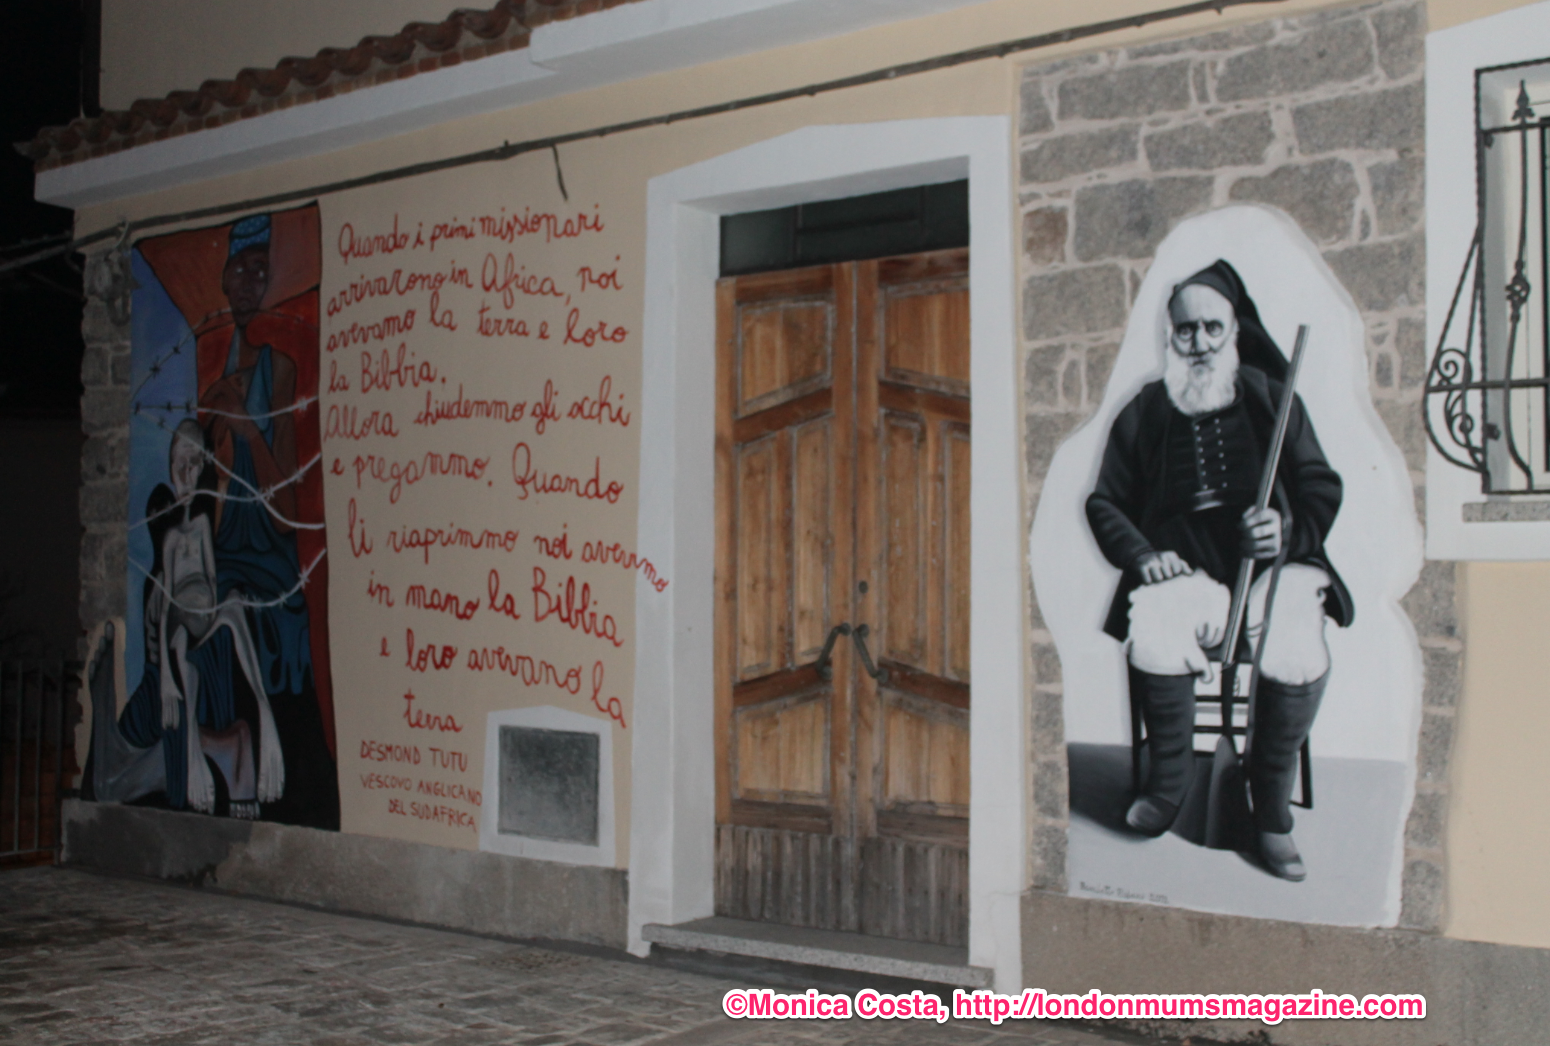 Quando i primi missionari
arrivarono in Africa, noi
avevamo la terra e loro
la Bibbia.
Allora chiudemmo gli occhi
e pregammo. Quando
li riaprimmo noi avevamo
in mano la Bibbia
e loro avevano la
terra
DESMOND TUTU
VESCOVO ANGLICANO
DEL SUDAFRICA
©Monica Costa, http://londonmumsmagazine.com